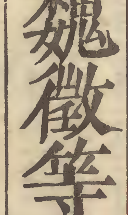 魏徵等